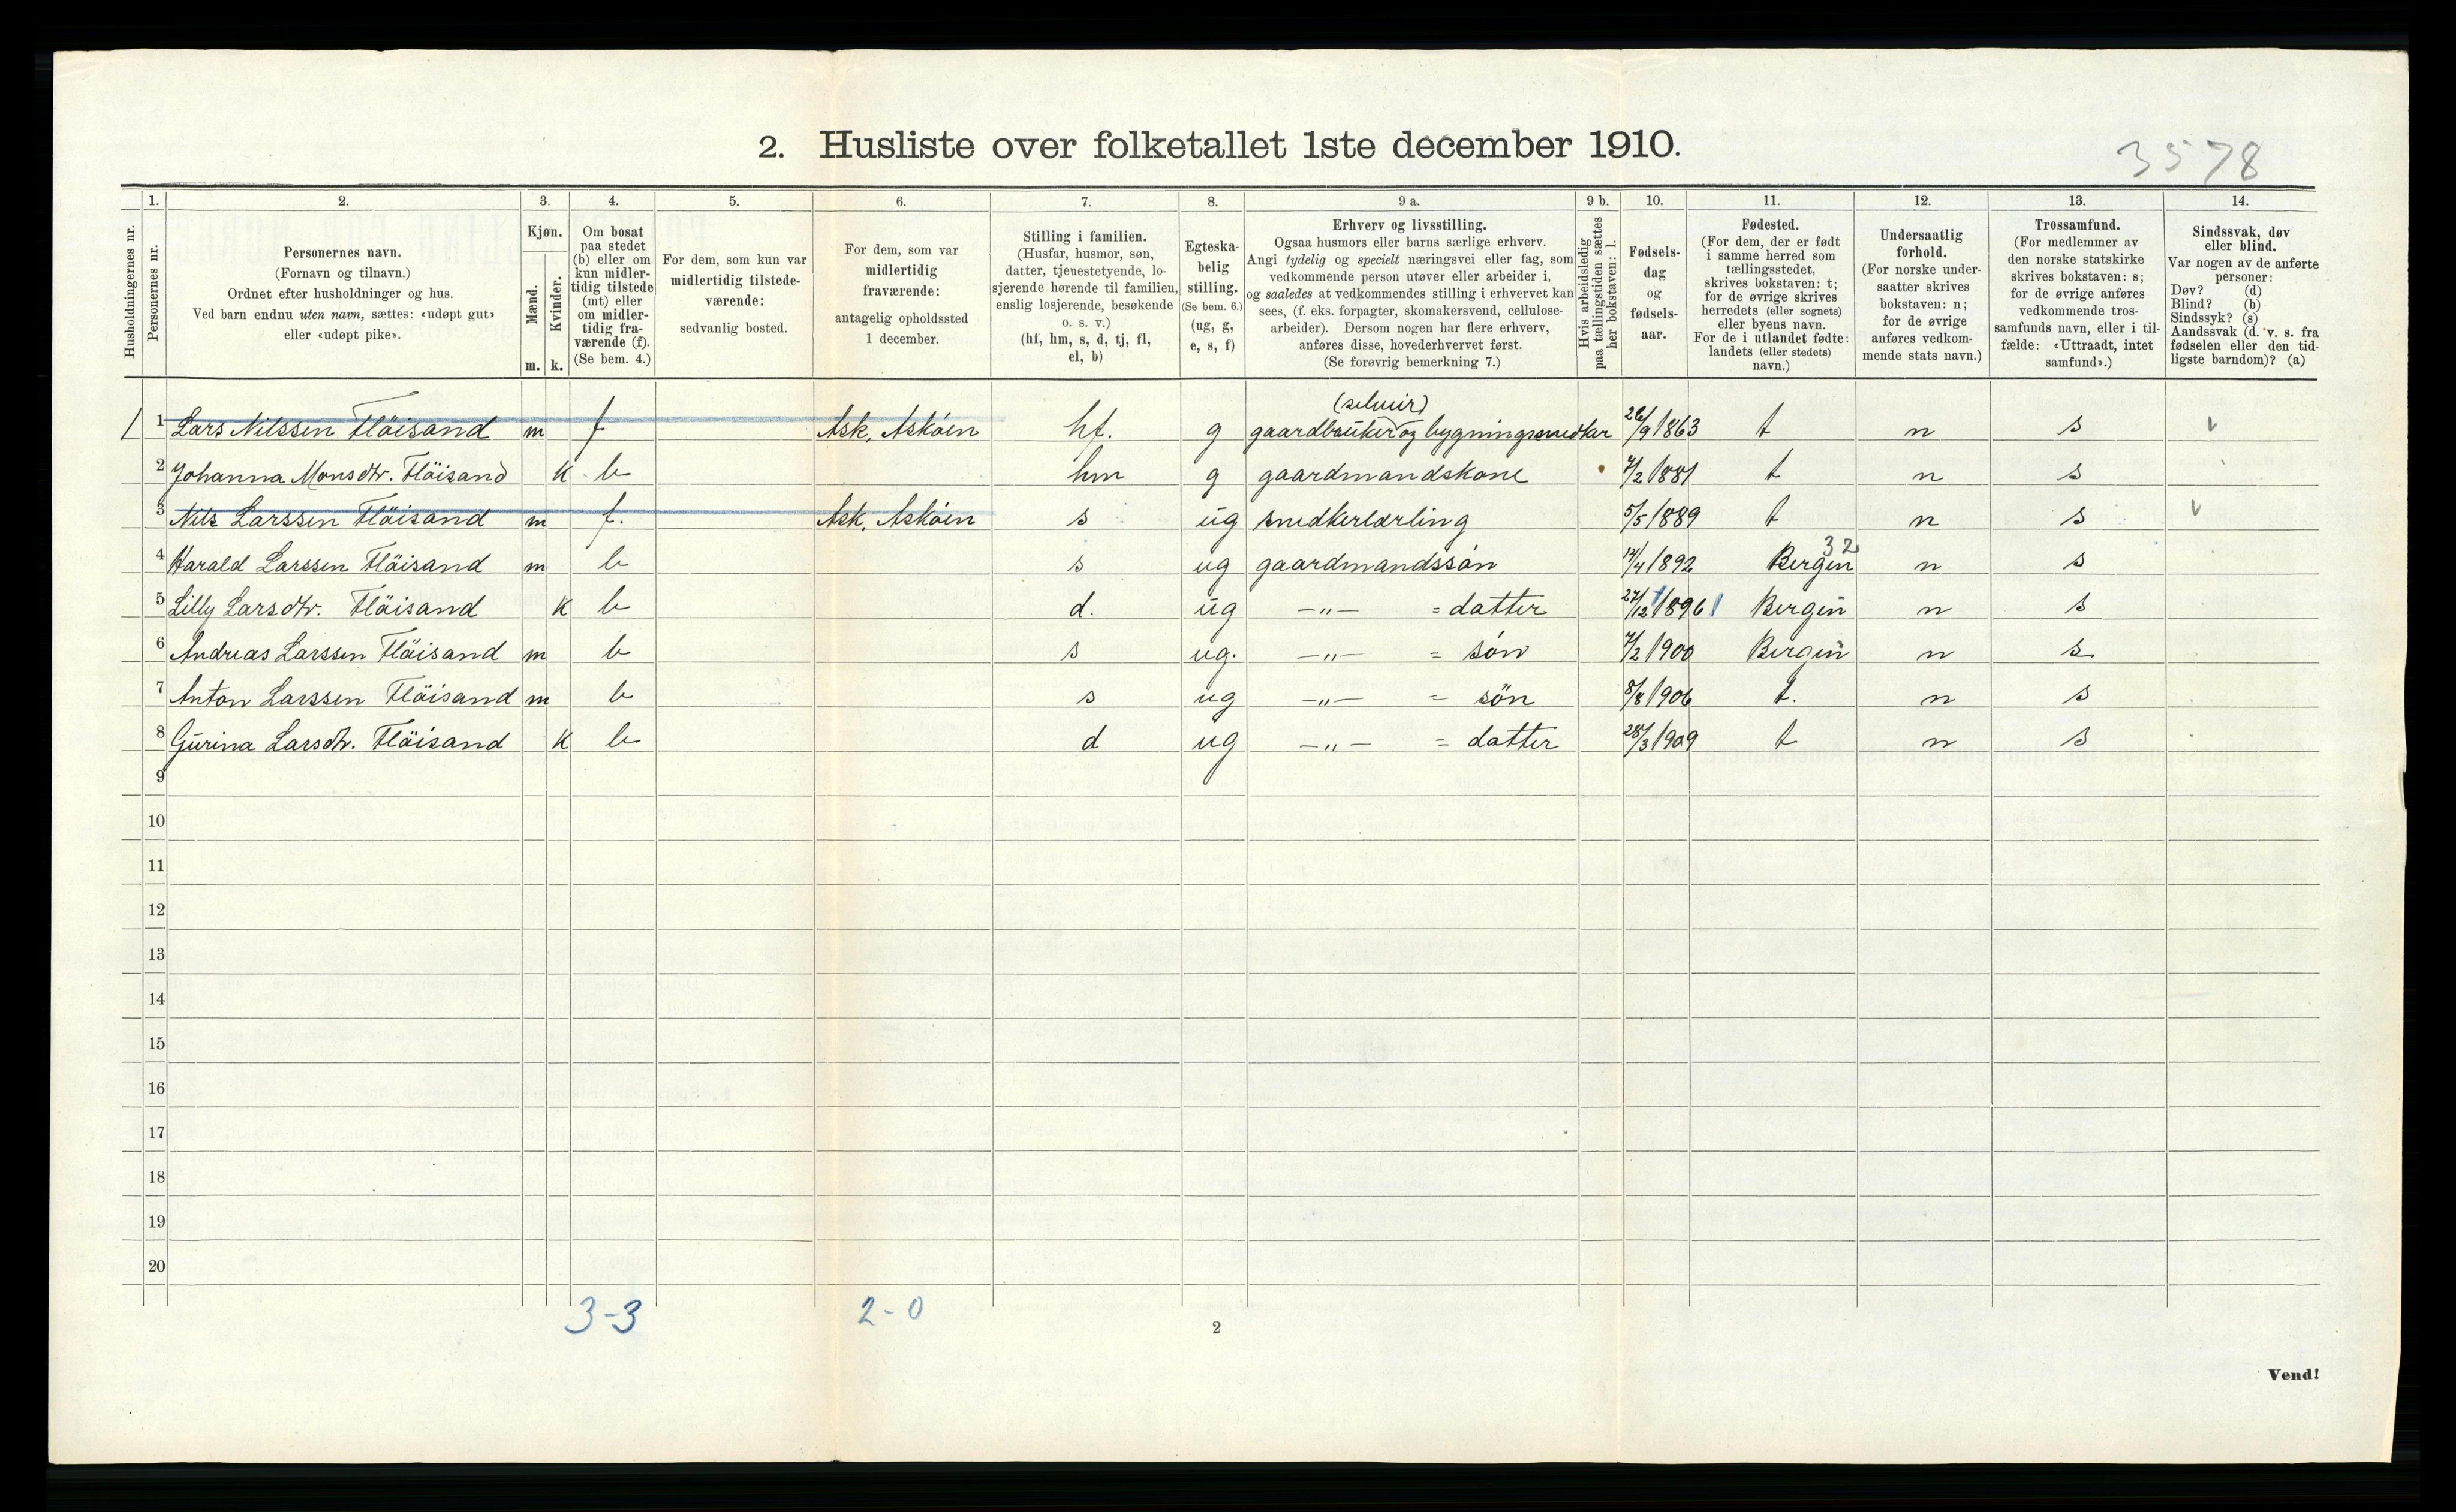 2. Husliste over folketallet 1ste december 1910.
3578
Husholdningernes nr.
1.
Personernes nr.
2.
Personernes navn.
(Fornavn og tilnavn.)
Ordnet efter husholdninger og hus.
Ved barn endnu uten navn, sættes: «udøpt gut»
eller «udøpt pike».
3.
Kjøn.
Mænd.
Kvinder.
m. k.
4.
Om bosat
paa stedet
(b) eller om
kun midler-
tidig tilstede
(mt) eller
om midler-
tidig fra-
værende (f).
(Se bem. 4.)
5.
For dem, som kun var
midlertidig tilstede-
værende:
sedvanlig bosted.
6.
For dem, som var
midlertidig
fraværende:
antagelig opholdssted
1 december.
7.
Stilling i familien.
(Husfar, husmor, søn,
datter, tjenestetyende, lo-
sjerende hørende til familien,
enslig losjerende, besøkende
o. s. v.)
(hf, hm, s, d, tj, fl,
el, b)
8.
Egteska-
belig
stilling.
(Se bem. 6.)
(ug, g,
e, s, f)
9 a.
Erhverv og livsstilling.
Ogsaa husmors eller barns særlige erhverv.
Angi tydelig og specielt næringsvei eller fag, som
vedkommende person utøver eller arbeider i,
og saaledes at vedkommendes stilling i erhvervet kan
sees, (f. eks. forpagter, skomakersvend, cellulose-
arbeider). Dersom nogen har flere erhverv,
anføres disse, hovederhvervet først.
(Se forøvrig bemerkning 7.)
9 b.
Hvis arbeidsledig
paa tællingstiden sættes
her bokstaven: l.
10.
Fødsels-
dag
og
fødsels-
aar.
11.
Fødested.
(For dem, der er født
i samme herred som
tællingsstedet,
skrives bokstaven: t;
for de øvrige skrives
herredets (eller sognets)
eller byens navn.
For de i utlandet fødte:
landets (eller stedets)
navn.)
12.
Undersaatlig
forhold.
(For norske under-
saatter skrives
bokstaven: n;
for de øvrige
anføres vedkom-
mende stats navn.)
13.
Trossamfund.
(For medlemmer av
den norske statskirke
skrives bokstaven: s;
for de øvrige anføres
vedkommende tros-
samfunds navn, eller i til-
fælde: «Uttraadt, intet
samfund».)
14.
Sindssvak, døv
eller blind.
Var nogen av de anførte
personer:
Døv? (d)
Blind? (b)
Sindssyk? (s)
Aandssvak (d. v. s. fra
fødselen eller den tid-
ligste barndom)? (a)
(seluir)
1 1 Lars Nilssen Fläisand m f Ask, Askøen hf. g gaardbruker og bygningsnedker 26/9 1863 t n s v
2 Johanna Monsdtr. Fläisand k b hm g gaardmandskone 7/2 1881 t n s
3 Nils Larssen Fläisand m f. Ask, Askøen s ug snedkerlærling 5/5 1889 t n s v
32
4 Harald Larssen Fläisand m b s ug gaardmandssøn 14/4 1892 Bergen n s
5 Lilly Larsdtr. Fläisand k b d. ug —"— = datter 27/12 1896 Bergen n s
6 Andreas Larssen Fläisand m b s ug. —"— = søn 7/2 1900 Bergen n s
7 Anton Larssen Fläisand m b s ug —"— = sön 8/8 1906 t. n s
8 Gurina Larsdtr. Fläisand k b d ug —"— = datter 28/3 1909 t n s
9
10
11
12
13
14
15
16
17
18
19
20
3-3 2-0
2
Vend!